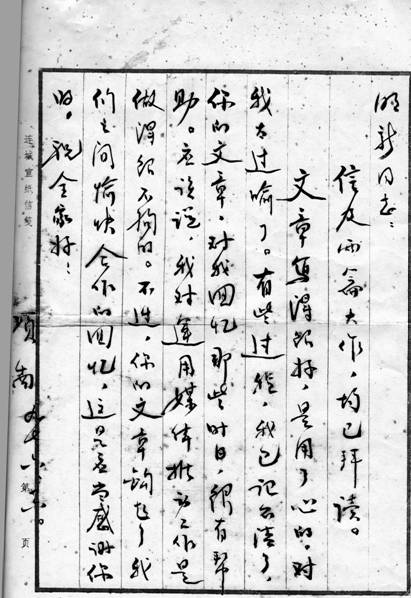 明新同志：
信及两篇大作，均已拜读。
文章写得很好，是用了心的，对
我太过喻了。有些过程，我已记不清了，
你的文章，对我回忆那些时日，很有帮
助。应该说，我对运用媒体推动工作是
做得很不够的。不过，你的文章钩起了我
们之间愉快合作的回忆，这是应当感谢你
的。祝全家好！
项南
连城宣纸信笺
第 页